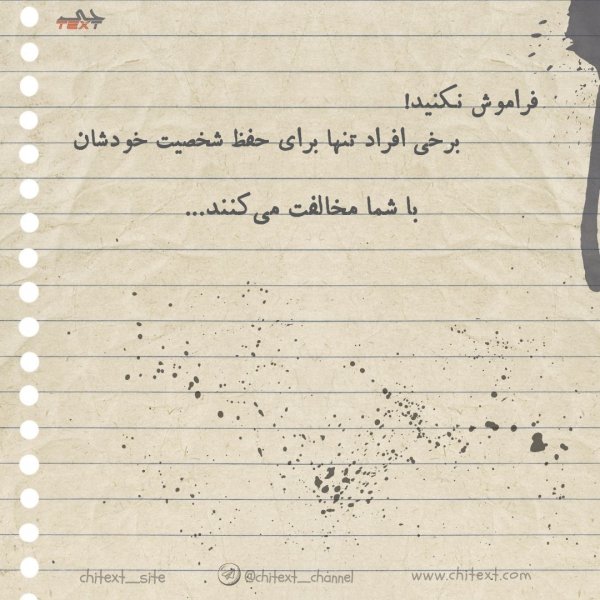 TEXT
فراموش نکنید!
برخی افراد تنها برای حفظ شخصیت خودشان
با شما مخالفت می‌کنند...
chitext_site
@chitext_channel
www.chitext.com